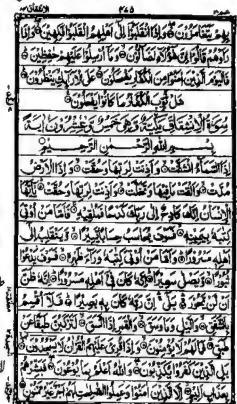 بِهِمْ يَتَغَامَزُونَ وَإِذَا انْقَلَبُوا إِلَىٰ أَهْلِهِمُ انْقَلَبُوا فَكِهِينَ وَإِذَا
رَأَوْهُمْ قَالُوا إِنَّ هَٰؤُلَاءِ لَضَالُّونَ وَمَا أُرْسِلُوا عَلَيْهِمْ حَافِظِينَ
فَالْيَوْمَ الَّذِينَ آمَنُوا مِنَ الْكُفَّارِ يَضْحَكُونَ عَلَى الْأَرَائِكِ يَنْظُرُونَ
هَلْ ثُوِّبَ الْكُفَّارُ مَا كَانُوا يَفْعَلُونَ
سُورَةُ الْاِنْشِقَاقِ مَكِّيَّةٌ وَهِيَ خَمْسٌ وَعِشْرُونَ آيَةً
بِسْمِ اللَّهِ الرَّحْمَٰنِ الرَّحِيمِ
إِذَا السَّمَاءُ انْشَقَّتْ وَأَذِنَتْ لِرَبِّهَا وَحُقَّتْ وَإِذَا الْأَرْضُ
مُدَّتْ وَأَلْقَتْ مَا فِيهَا وَتَخَلَّتْ وَأَذِنَتْ لِرَبِّهَا وَحُقَّتْ يَا أَيُّهَا
الْإِنْسَانُ إِنَّكَ كَادِحٌ إِلَىٰ رَبِّكَ كَدْحًا فَمُلَاقِيهِ فَأَمَّا مَنْ أُوتِيَ
كِتَابَهُ بِيَمِينِهِ فَسَوْفَ يُحَاسَبُ حِسَابًا يَسِيرًا وَيَنْقَلِبُ إِلَىٰ
أَهْلِهِ مَسْرُورًا وَأَمَّا مَنْ أُوتِيَ كِتَابَهُ وَرَاءَ ظَهْرِهِ فَسَوْفَ يَدْعُو
ثُبُورًا وَيَصْلَىٰ سَعِيرًا إِنَّهُ كَانَ فِي أَهْلِهِ مَسْرُورًا إِنَّهُ ظَنَّ
أَنْ لَنْ يَحُورَ بَلَىٰ إِنَّ رَبَّهُ كَانَ بِهِ بَصِيرًا فَلَا أُقْسِمُ
بِالشَّفَقِ وَاللَّيْلِ وَمَا وَسَقَ وَالْقَمَرِ إِذَا اتَّسَقَ لَتَرْكَبُنَّ طَبَقًا عَنْ
طَبَقٍ فَمَا لَهُمْ لَا يُؤْمِنُونَ وَإِذَا قُرِئَ عَلَيْهِمُ الْقُرْآنُ لَا يَسْجُدُونَ
بَلِ الَّذِينَ كَفَرُوا يُكَذِّبُونَ وَاللَّهُ أَعْلَمُ بِمَا يُوعُونَ فَبَشِّرْهُمْ
بِعَذَابٍ أَلِيمٍ إِلَّا الَّذِينَ آمَنُوا وَعَمِلُوا الصَّالِحَاتِ لَهُمْ أَجْرٌ غَيْرُ مَمْنُونٍ